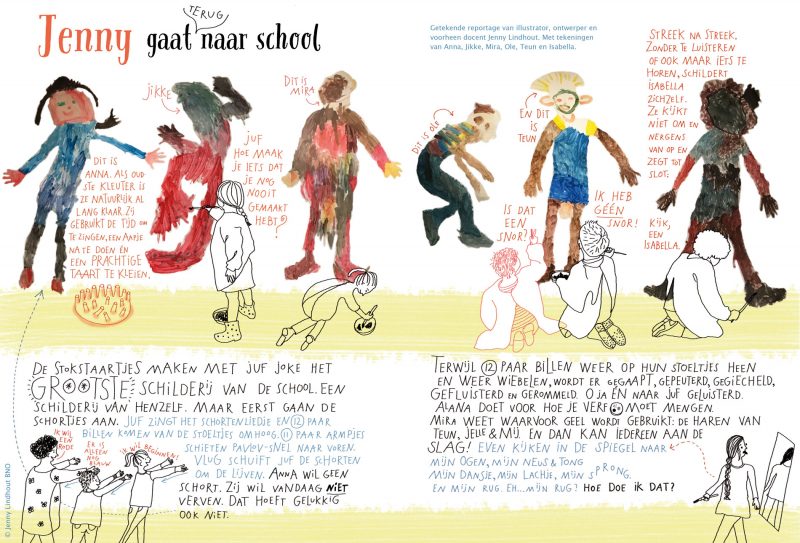 TERUG
Jenny gaat naar school
Getekende reportage van illustrator, ontwerper en
voorheen docent Jenny Lindhout. Met tekeningen
van Anna, Jikke, Mira, Ole, Teun en Isabella.
DIT IS
ANNA. ALS OUD
STE KLEUTER IS
ZE NATUURLIJK AL
LANG KLAAR. ZIJ
GEBRUIKT DE TIJD OM
TE ZINGEN, EEN AAPJE
NA TE DOEN ÉN
EEN PRACHTIGE
TAART TE KLEIEN.
JIKKE
JUF
HOE MAAK
JE IETS DAT
JE NOG
NOOIT
GEMAAKT
HEBT?
DIT IS
MIRA
DIT IS OLE
EN DIT
IS
TEUN
IS DAT
EEN
SNOR?
IK HEB
GÉÉN
SNOR!
STREEK NA STREEK.
ZONDER TE LUISTEREN
OF OOK MAAR IETS TE
HOREN, SCHILDERT
ISABELLA
ZICHZELF.
ZE KIJKT
NIET OM EN
NERGENS
VAN OP EN
ZEGT TOT
SLOT:
KIJK,
EEN
ISABELLA.
DE STOKSTAARTJES MAKEN MET JUF JOKE HET
GROOTSTE SCHILDERIJ VAN DE SCHOOL. EEN
SCHILDERIJ VAN HENZELF. MAAR EERST GAAN DE
SCHORTJES AAN. JUF ZINGT HET SCHORTENLIEDJE EN 12 PAAR
BILLEN KOMEN VAN DE STOELTJES OMHOOG. 11 PAAR ARMPJES
SCHIETEN PAVLOV-SNEL NAAR VOREN.
VLUG SCHUIFT JUF DE SCHORTEN
OM DE LIJVEN. ANNA WIL GEEN
SCHORT. ZIJ WIL VANDAAG NIET
VERVEN. DAT HOEFT GELUKKIG
OOK NIET.
IK WIL
EEN
RODE
ER IS
ALLEEN
NOG
BLAUW
IK WIL BEGINNEN!
TERWIJL 12 PAAR BILLEN WEER OP HUN STOELTJES HEEN
EN WEER WIEBELEN, WORDT ER GEGAAPT, GEPEUTERD, GEGIECHELD,
GEFLUISTERD EN GEROMMELD. O JA ÉN NAAR JUF GELUISTERD.
ALANA DOET VOOR HOE JE VERF MOET MENGEN.
MIRA WEET WAARVOOR GEEL WORD GEBRUIKT: DE HAREN VAN
TEUN, JELLE & MIJ. EN DAN KAN IEDEREEN AAN DE
SLAG! EVEN KIJKEN IN DE SPIEGEL NAAR
MIJN OGEN, MIJN NEUS & TONG
MIJN DANSJE, MIJN LACHJE, MIJN SPRONG.
EN MIJN RUG. EH...MIJN RUG? HOE DOE IK DAT?
© Jenny Lindhout BNO